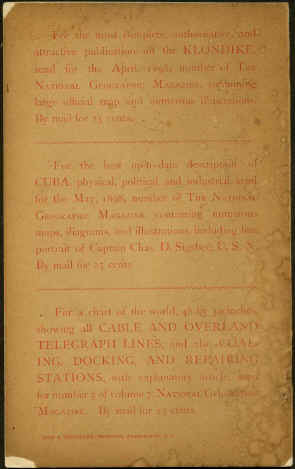 For the most complete, authoritative, and
attractive publication on the KLONDIKE,
send for the April, 1898, number of THE
NATIONAL GEOGRAPHIC MAGAZINE, containing
large official map and numerous illustrations.
By mail for 25 cents.
For the best up-to-date description of
CUBA, physical, political, and industrial, send
for the May, 1898, number of THE NATIONAL
GEOGRAPHIC MAGAZINE, containing numerous
maps, diagrams, and illustrations, including fine
portrait of Captain Chas. D. Sigsbee, U. S. N.
By mail for 25 cents.
For a chart of the world, inches,
showing all CABLE AND OVERLAND
TELEGRAPH LINES, and the COAL-
ING, DOCKING, AND REPAIRING
STATIONS, with explanatory article, send
for number 3 of volume 7, NATIONAL GEOGRAPHIC
MAGAZINE. By mail for 25 cents.
PRINTERS, WASHINGTON, D. C.